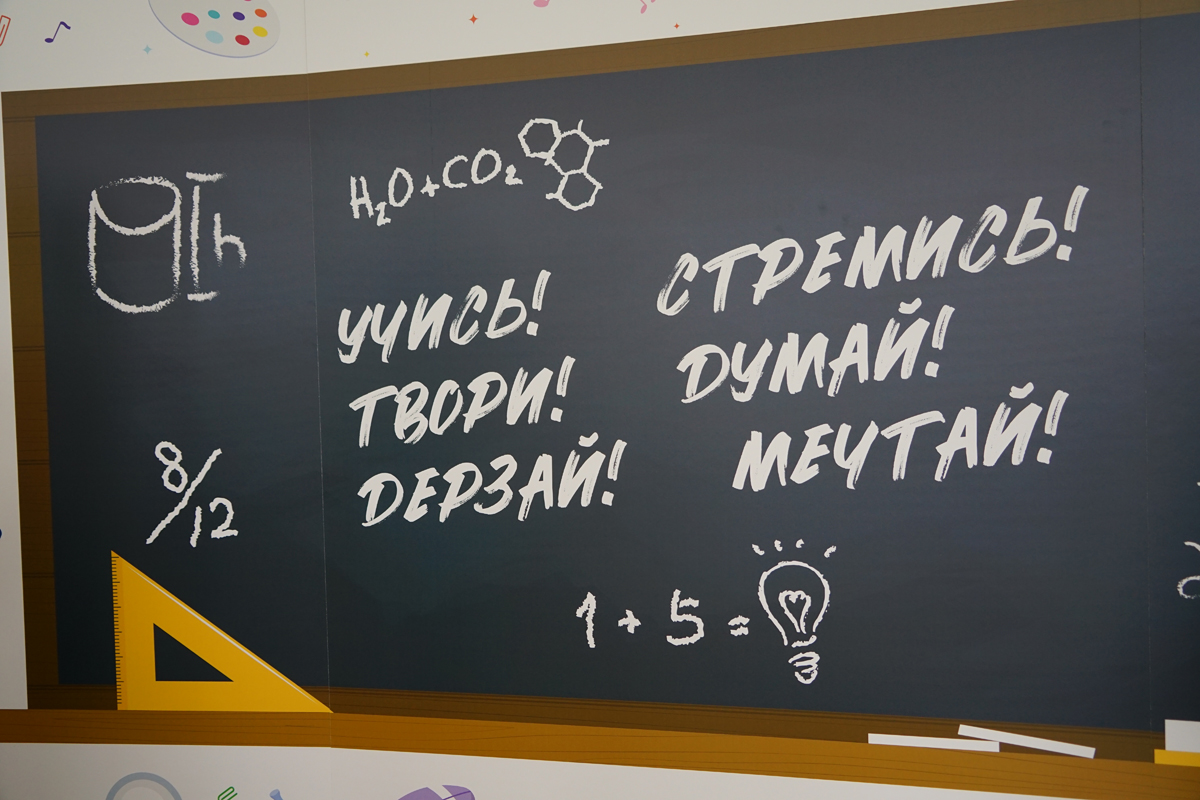 H₂O+CO₂
h
УЧИСЬ!
ТВОРИ!
ДЕРЗАЙ!
СТРЕМИСЬ!
ДУМАЙ!
МЕЧТАЙ!
8/12
1+5=